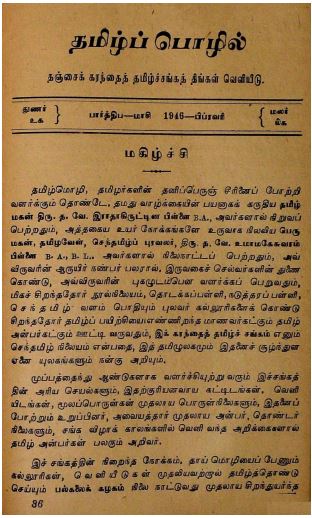 தமிழ்ப் பொழில்
தஞ்சைக் கரந்தைத் தமிழ்ச்சங்கத் திங்கள் வெளியீடு.
துணர் உக } பார்த்திப—மாசி 1946—பிப்ரவரி { மலர்
மகிழ்ச்சி
தமிழ்மொழி, தமிழர்களின் தனிப்பெருஞ் சீரினைப் போற்றி
வளர்க்கும் தொண்டே, தமது வாழ்க்கையின் பயனாகக் கருதிய தமிழ்
மகன் திரு. த. வே. இராதாகிருட்டின பிள்ளை B.A., அவர்களால் நிறுவப்
பெற்றதும், அத்தகைய உயர் நோக்கங்களே உருவாக நிலவிய பெரு
மகன், தமிழவேள், செந்தமிழ்ப் புரவலர், திரு. த. வே. உமாமகேசுவரம்
பிள்ளை B. A., B. L.. அவர்களால் நிலைநாட்டப் பெற்றதும், அவ்
விருவரின் ஆருயிர் நண்பர் பலரால், இருவகைச் செல்வர்களின் துணை
கொண்டு, அவ்விருவரின் புகழுடம்பென வளர்க்கப் பெறுவதும்,
மிகச் சிறந்ததோர் நூல்நிலையம், தொடக்கப்பள்ளி, நடுத்தரப் பள்ளி,
செந்தமிழ் வளம் பொதியும் புலவர் கல்லூரிகளைக் கொண்டு
சிறந்ததோர் தமிழ்ப் பயிற்சியை மாணவர்கட்கும் தமிழ்
அன்பர்கட்கும் ஊட்டி வருவதும், இக் கரந்தைத் தமிழ்ச் சங்கம் எனும்
செந்தமிழ் நிலையம் என்பதை, இத் தமிழுலகமும் இதனைச் சூழ்ந்துள
ஏனை யுலகங்களும் நன்கு அறியும்.
முப்பத்தைந்து ஆண்டுகளாக வளர்ச்சியுற்று வரும் இச்சங்கத்
தின் அரிய செயல்களும், இதற்குரியனவாய கட்டிடங்கள், வெளி
யிடங்கள், மூலப்பொருள்கள் முதலாய பொருள்நிலைகளும், இதனைப்
போற்றும் உறுப்பினர், அவையத்தார் முதலாய அன்பர், தொண்டர்
நிலைகளும், சங்க விழாக் காலங்களில் வெளி வந்த அறிக்கைகளால்
தமிழ் அன்பர்கள் பலரும் அறிவர்.
இச் சங்கத்தின் நிறைந்த நோக்கம், தாய் மொழியைப் பேணும்
கல்லூரிகள், வெளியீடுகள் முதலியவற்றால் தமிழ்த்தொண்டு
செய்யும் பல்கலைக் கழகம் நிலை நாட்டுவது முதலாய சிறந்துயர்ந்த
36